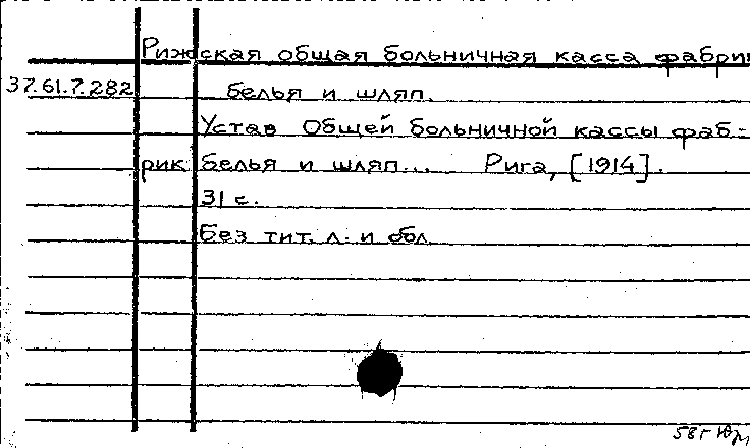 Рижская общая больничная касса фабрик
37.61.7.282 белья и шляп.
Устав Общей больничной кассы фаб=
рик белья и шляп... Рига, [1914].
31 с.
Без тит. л. и обл.
58г